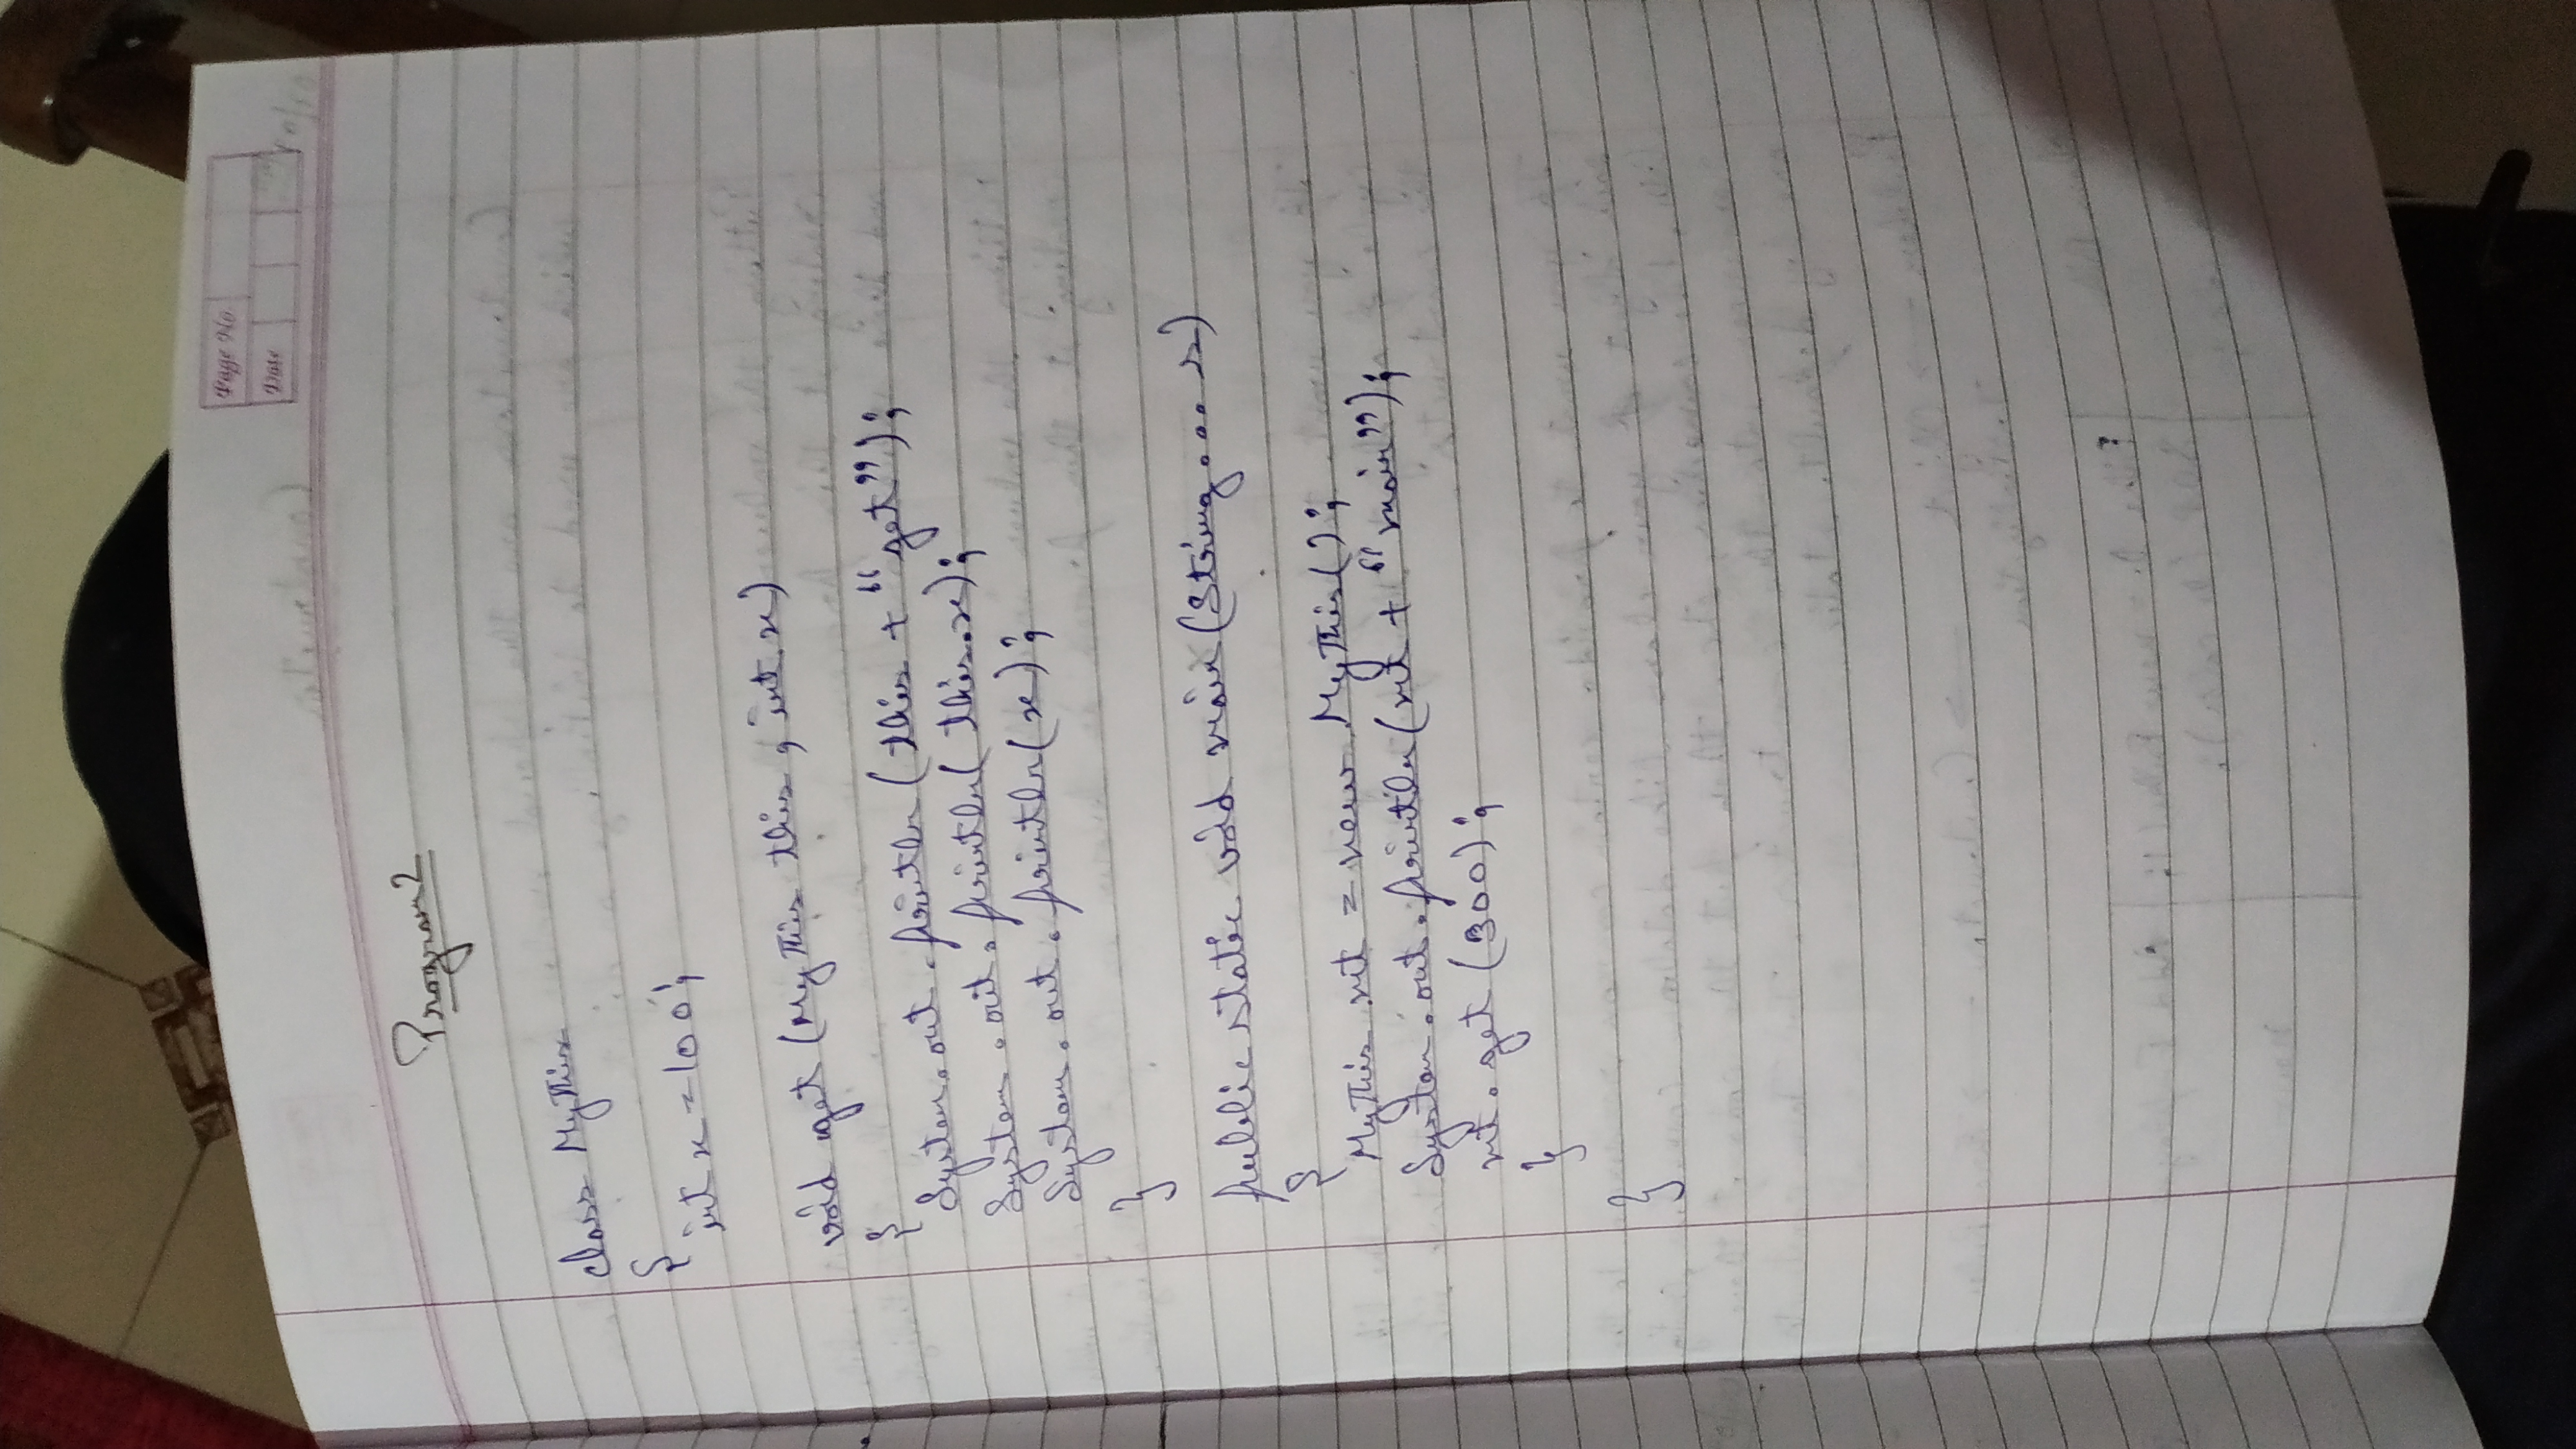 Page No
Date
Program 2
class MyThis
{
int x = 100;
void get (MyThis this, int x)
{
System.out.println (this + "get");
System.out.println (this.x);
System.out.println (x);
}
public static void main (String...s)
{
MyThis mt = new MyThis();
System.out.println (mt + "main");
mt.get (300);
}
}